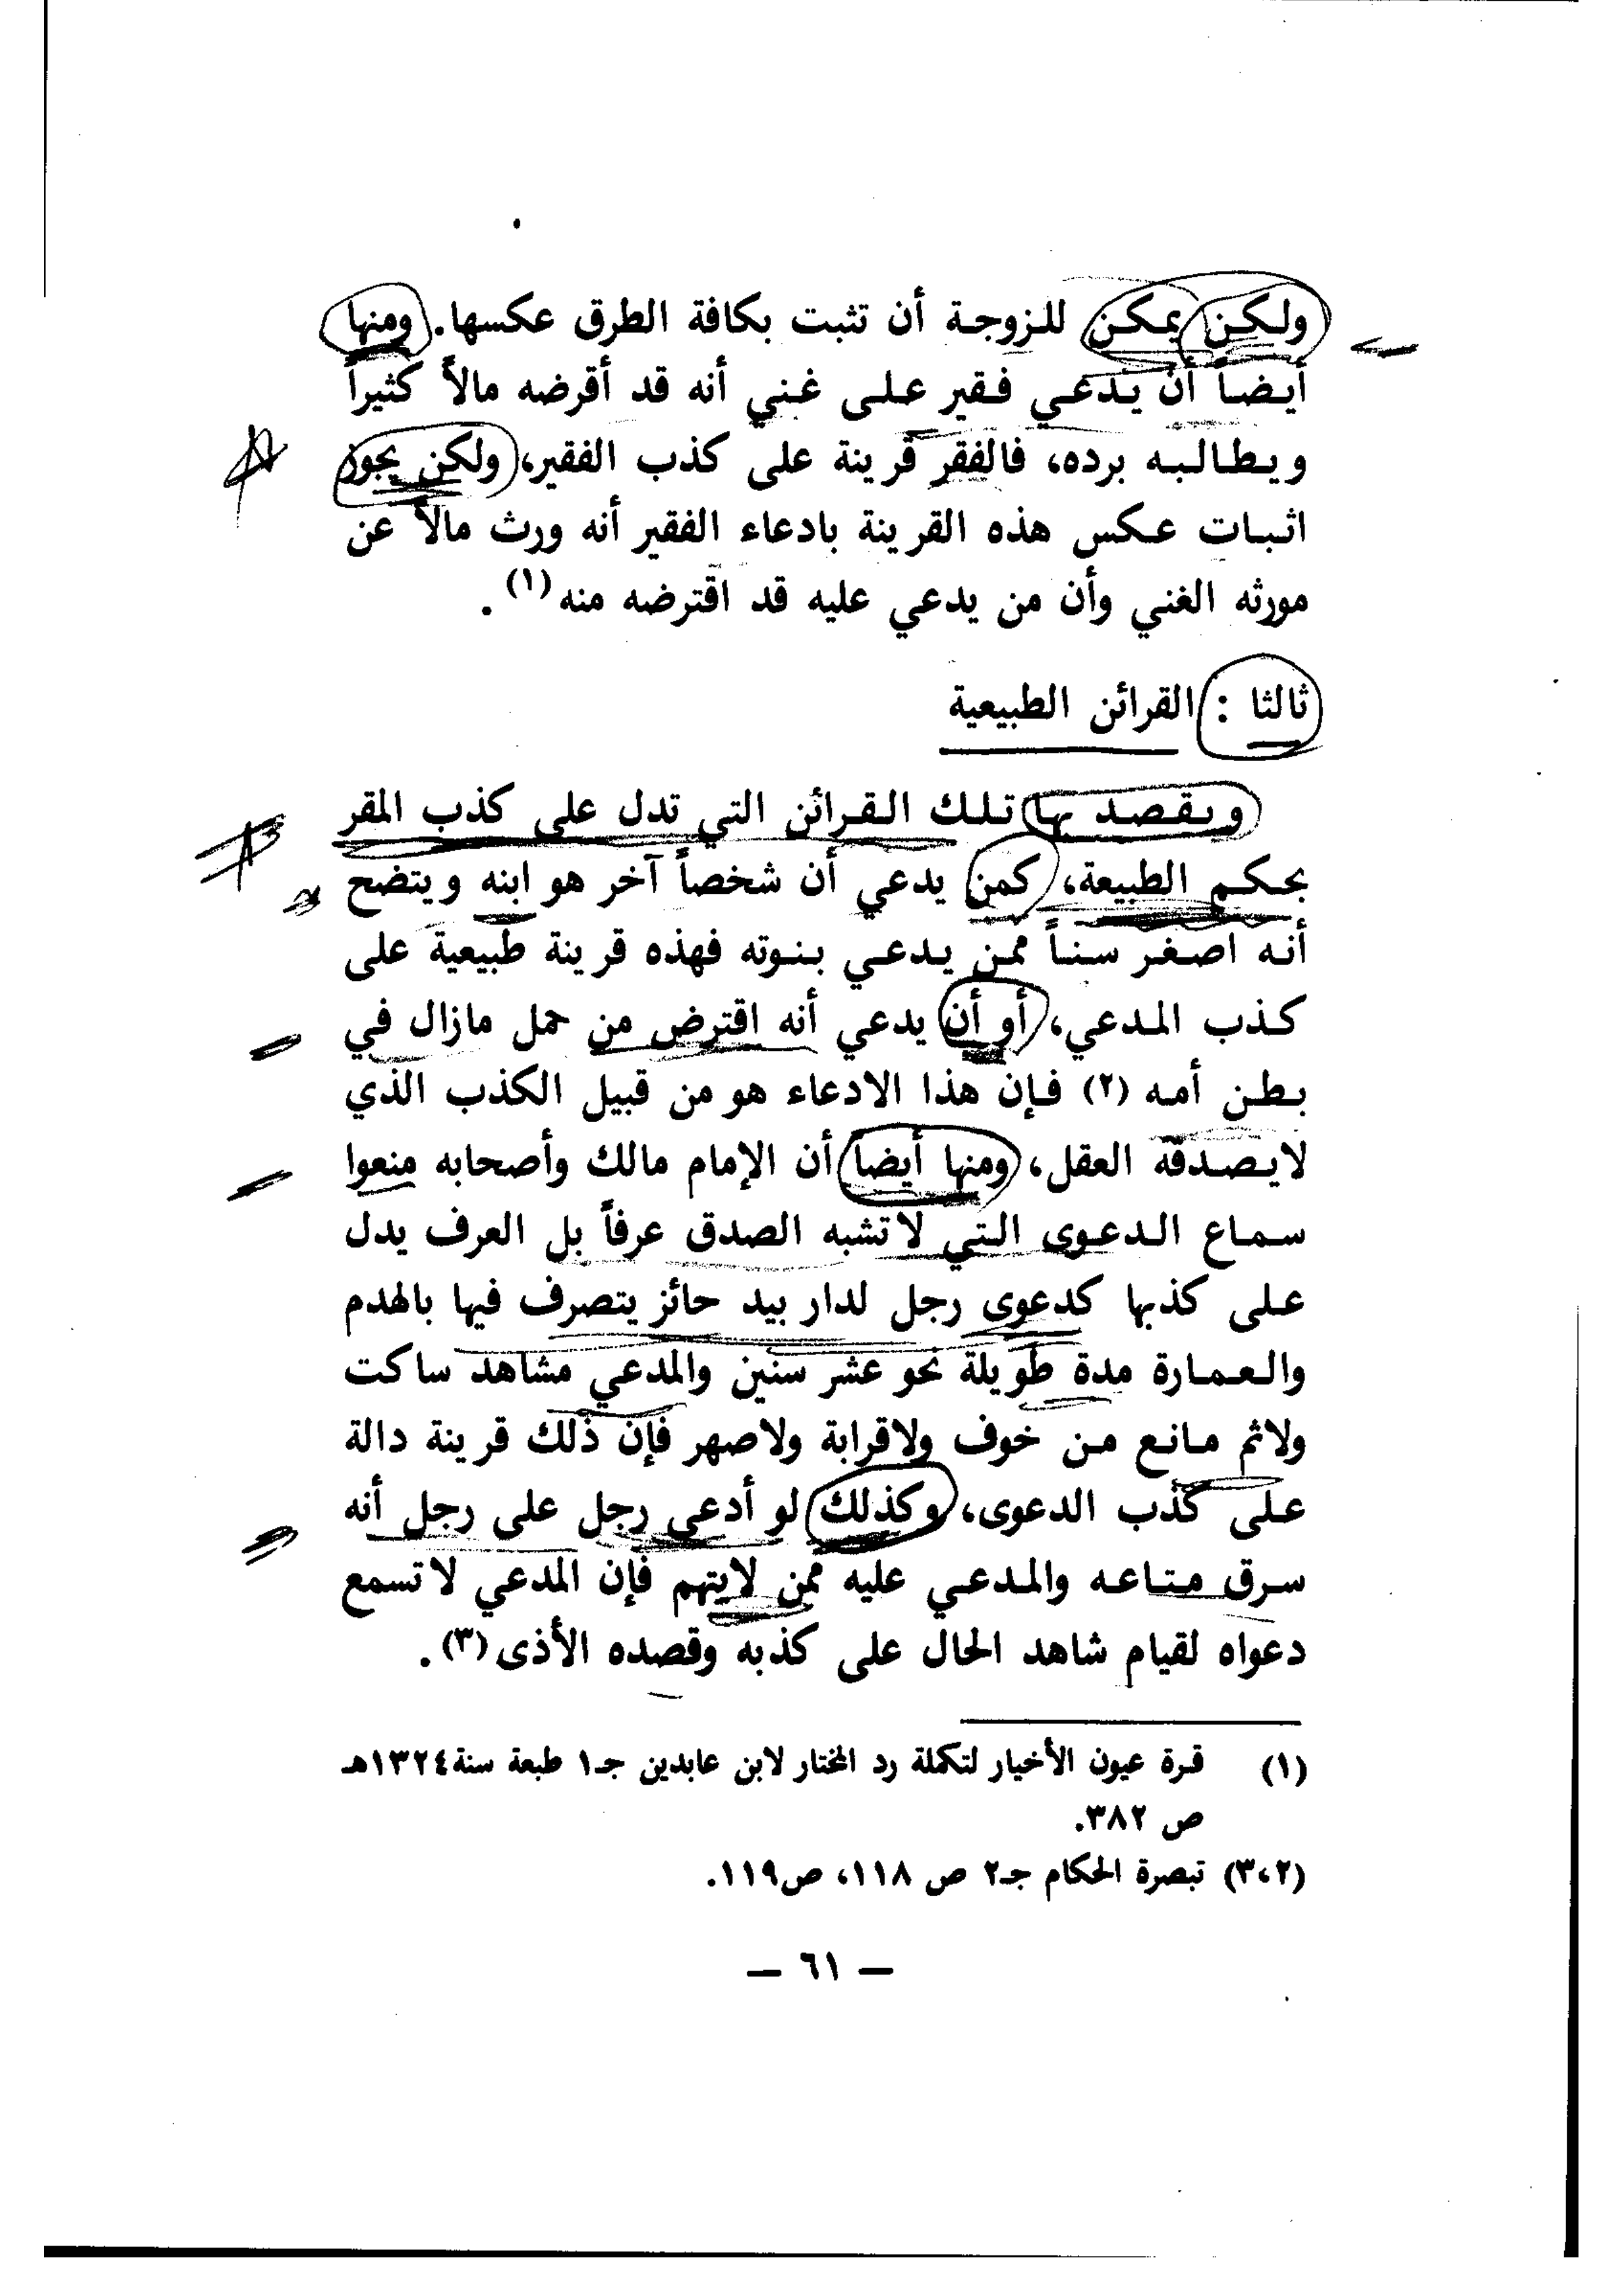 ولكن يمكن للزوجة أن تثبت بكافة الطرق عكسها. ومنها
أيضاً أن يدعي فقير على غني أنه قد أقرضه مالاً كثيراً
ويطالبه برده، فالفقر قرينة على كذب الفقير، ولكن يجوز
اثبات عكس هذه القرينة بادعاء الفقير أنه ورث مالاً عن
مورثه الغني وأن من يدعي عليه قد اقترضه منه (١) .
ثالثا : القرائن الطبيعية
ويقصد بها تلك القرائن التي تدل على كذب المقر
بحكم الطبيعة، كمن يدعي أن شخصاً آخر هو ابنه ويتضح
أنه اصغر سناً ممن يدعي بنوته فهذه قرينة طبيعية على
كذب المدعي، أو أن يدعي أنه اقترض من حمل مازال في
بطن أمه (٢) فإن هذا الادعاء هو من قبيل الكذب الذي
لايصدقه العقل، ومنها أيضاً أن الإمام مالك وأصحابه منعوا
سماع الدعوى التي لا تشبه الصدق عرفاً بل العرف يدل
على كذبها كدعوى رجل لدار بيد حائز يتصرف فيها بالهدم
والعمارة مدة طويلة نحو عشر سنين والمدعي مشاهد ساكت
ولاثم مانع من خوف ولاقرابة ولاصهر فإن ذلك قرينة دالة
على كذب الدعوى، وكذلك لو أدعى رجل على رجل أنه
سرق متاعه والمدعي عليه ممن لايتهم فإن المدعي لا تسمع
دعواه لقيام شاهد الحال على كذبه وقصده الأذى (٣) .
(١) قرة عيون الأخيار لتكملة رد المختار لابن عابدين جـ١ طبعة سنة ١٣٢٤هـ
ص ٣٨٢.
(٣،٢) تبصرة الحكام جـ٢ ص ١١٨، ص١١٩.
— ٦١ —